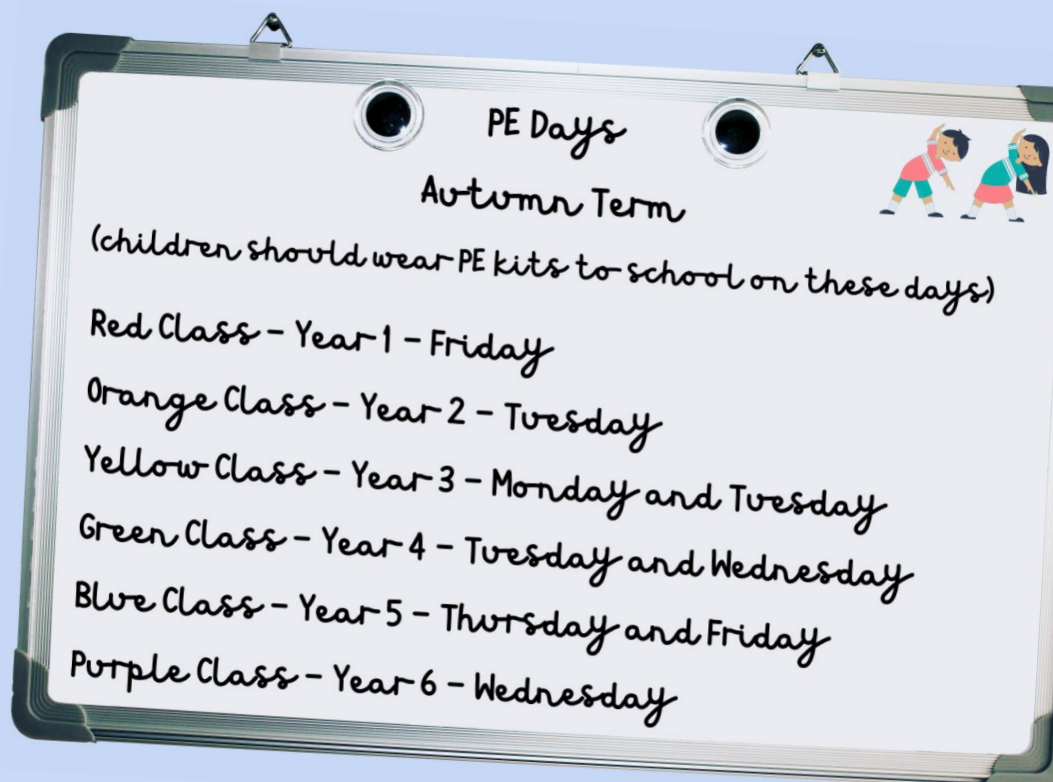 PE Days
Autumn Term
(children should wear PE kits to school on these days)
Red Class - Year 1 - Friday
Orange Class - Year 2 - Tuesday
Yellow Class - Year 3 - Monday and Tuesday
Green Class - Year 4 - Tuesday and Wednesday
Blue Class - Year 5 - Thursday and Friday
Purple Class - Year 6 - Wednesday